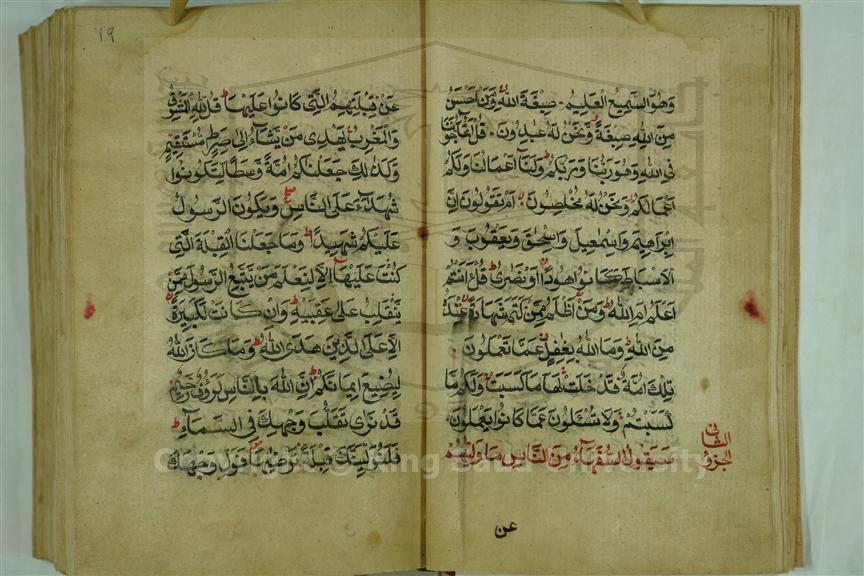 وهو السميع العليم صبغة الله ومن احسن
من الله صبغة ونحن له عبدون قل اتحاجوننا
في الله وهو ربنا وربكم ولنا اعمالنا ولكم
اعمالكم ونحن له مخلصون ام تقولون ان
ابراهيم واسمعيل واسحق ويعقوب و
الاسباط كانوا هودا او نصرى قل ءانتم
اعلم ام الله ومن اظلم ممن كتم شهادة عنده
من الله وما الله بغفل عما تعملون
تلك امة قد خلت لها ما كسبت ولكم ما
كسبتم ولا تسئلون عما كانوا يعملون
سيقول السفهاء من الناس ما وليهم
الجزؤ
الثاني
عن
١٩
عن قبلتهم التي كانوا عليها قل لله المشرق
والمغرب يهدى من يشاء الى صرط مستقيم
وكذلك جعلنكم امة وسطا لتكونوا
شهداء على الناس ويكون الرسول
عليكم شهيدا وما جعلنا القبلة التي
كنت عليها الا لنعلم من يتبع الرسول ممن
ينقلب على عقبيه وان كانت لكبيرة
الا على الذين هدى الله وما كان الله
ليضيع ايمانكم ان الله بالناس لرؤف رحيم
قد نرى تقلب وجهك في السماء
فلنولينك قبلة ترضيها فول وجهك
Copyright © King Saud University